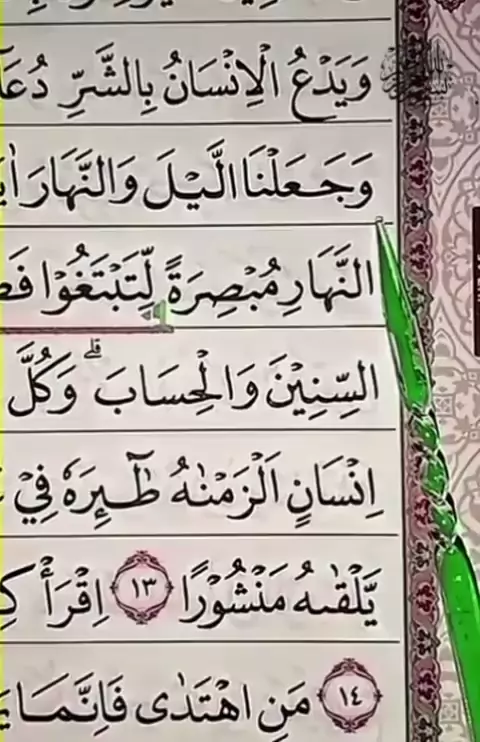 وَيَدْعُ الْاِنْسَانُ بِالشَّرِّ دُعَآ
وَجَعَلْنَا الَّيْلَ وَالنَّهَارَ اٰيَ
النَّهَارِ مُبْصِرَةً لِّتَبْتَغُوْا فَض
السِّنِيْنَ وَالْحِسَابَ ۗ وَكُلَّ
اِنْسَانٍ اَلْزَمْنٰهُ طٰۤىِٕرَهٗ فِيْ
يَّلْقٰىهُ مَنْشُوْرًا ١٣ اِقْرَأْ كِ
١٤ مَنِ اهْتَدٰى فَاِنَّمَا يَ